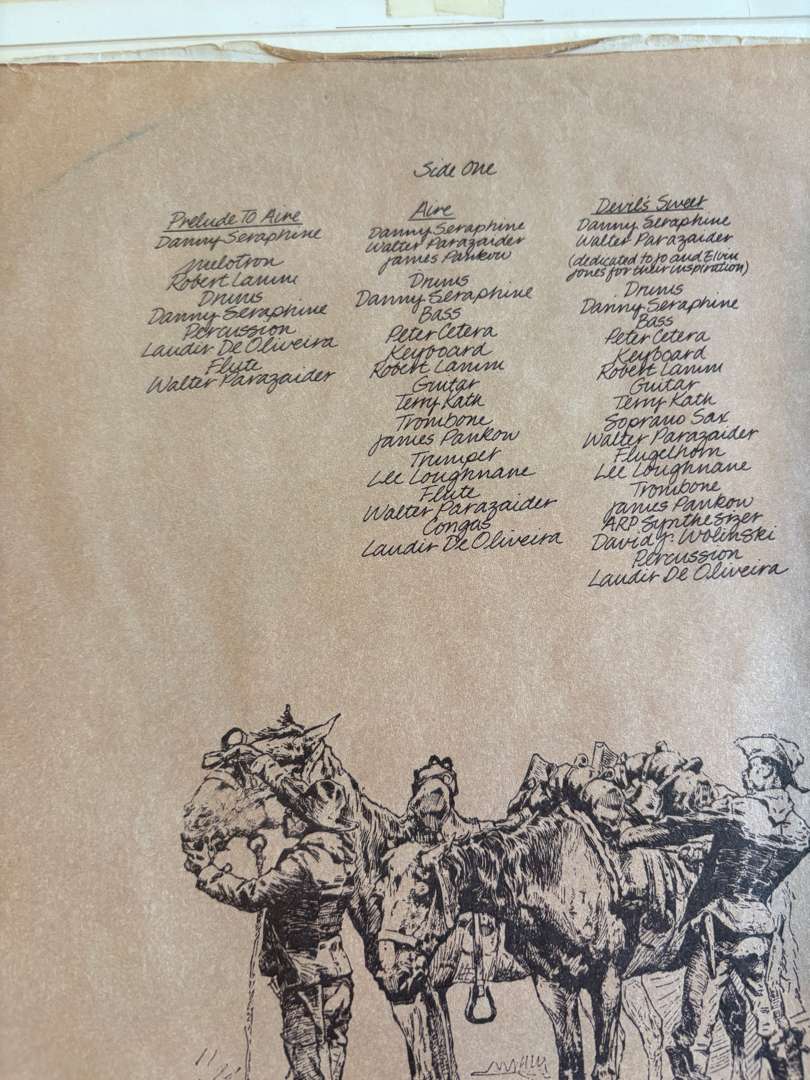 Side One
Prelude To Aire
Danny Seraphine
Melotron
Robert Lamm
Drums
Danny Seraphine
Percussion
Laudir De Oliveira
Flute
Walter Parazaider
Aire
Danny Seraphine
Walter Parazaider
James Pankow
Drums
Danny Seraphine
Bass
Peter Cetera
Keyboard
Robert Lamm
Guitar
Terry Kath
Trombone
James Pankow
Trumpet
Lee Loughnane
Flute
Walter Parazaider
Congas
Laudir De Oliveira
Devil's Sweet
Danny Seraphine
Walter Parazaider
(dedicated to Jo and Elvin
Jones for their inspiration)
Drums
Danny Seraphine
Bass
Peter Cetera
Keyboard
Robert Lamm
Guitar
Terry Kath
Soprano Sax
Walter Parazaider
Flugelhorn
Lee Loughnane
Trombone
James Pankow
ARP Synthesizer
David J. Wolinski
Percussion
Laudir De Oliveira